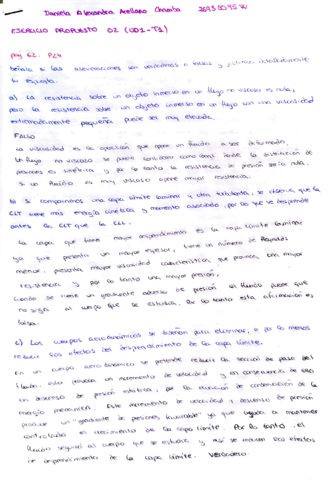 Daniela Alexandra Arellano Chamba
EJERCICIO PROPUESTO 02 (UD1-T3)
pag 62. P24
Señala si las aseveraciones son verdaderas o falsas y
tu respuesta.
a) La resistencia sobre un objeto inmerso en un flujo no viscoso es nula,
pero la resistencia sobre un objeto inmerso en un flujo con una viscosidad
extremadamente pequeña puede ser muy elevada.
FALSO
La viscosidad es la oposición que opone un fluido a ser deformado.
Un flujo no viscoso se puede considerar como ideal donde la distribución de
presiones es simétrica y por lo tanto la resistencia de presión sería nula.
Si un fluido es muy viscoso opone mayor resistencia.
b) Si comparamos una capa límite laminar y otra turbulenta, se observa que la
CLT tiene más energía cinética y momento asociado, por lo que se desprende
antes la CLT que la CLL.
La capa que tiene mayor desprendimiento es la capa límite laminar
ya que presenta un mayor espesor, tiene un número de Reynolds
menor, presenta mayor viscosidad característica que provoca una mayor
resistencia y por lo tanto una mayor presión,
cuando se tiene un gradiente adverso de presión el fluido puede que
no siga al cuerpo que se estudia. Por lo tanto esta afirmación es
falsa.
c) Los cuerpos aerodinámicos se diseñan para eliminar, o por lo menos
reducir los efectos del desprendimiento de la capa límite.
En un cuerpo aerodinámico se pretende reducir la sección de paso del
fluido, esto provoca un incremento de velocidad y en consecuencia de ello
un descenso de presión estática, por la ecuación de conservación de la
energía mecánica. Este incremento de velocidad y descenso de presión
produce un "gradiente de presiones favorable" ya que ayuda a mantener
controlado el crecimiento de la capa límite. Por lo tanto, el
fluido seguirá al cuerpo que se estudie y así se reducen los efectos
de desprendimiento de la capa límite. VERDADERO